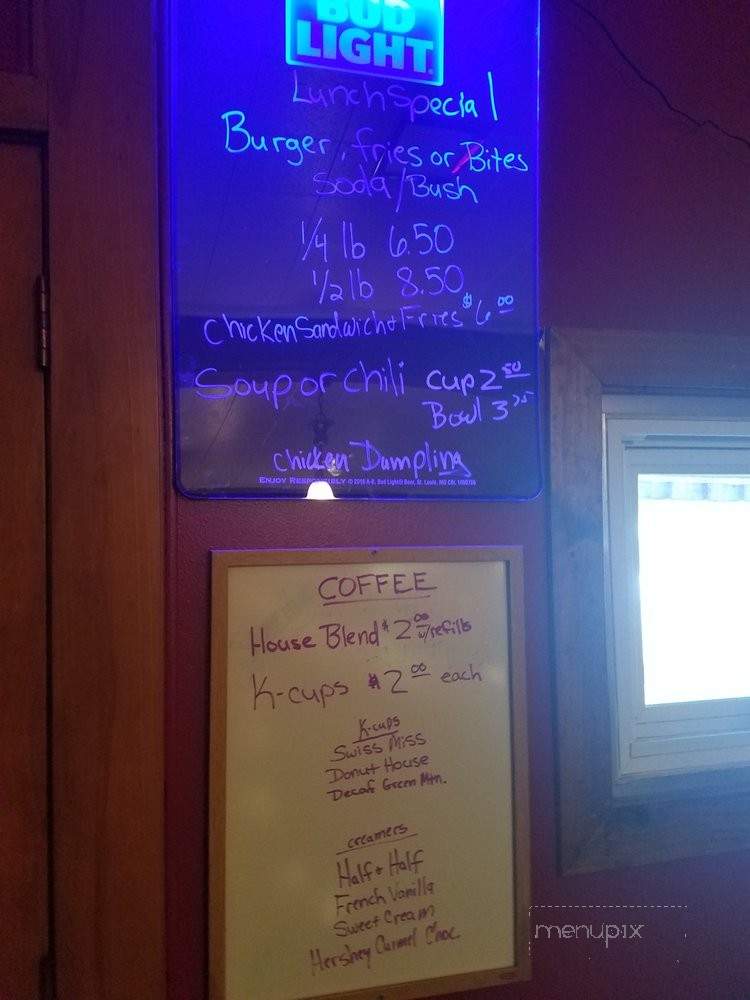 BUD
LIGHT
Lunch Special
Burger, fries or Bites
Soda/Bush
1/4 lb 6.50
1/2 lb 8.50
Chicken Sandwich & Fries $6.00
Soup or Chili Cup 2.50
Bowl 3.75
Chicken Dumpling
ENJOY RESPONSIBLY
COFFEE
House Blend $2.00 w/refills
K-cups $2.00 each
K-cups
Swiss Miss
Donut House
Decaf Green Mtn.
creamers
Half & Half
French Vanilla
Sweet Cream
Hershey Carmel Choc
menupix